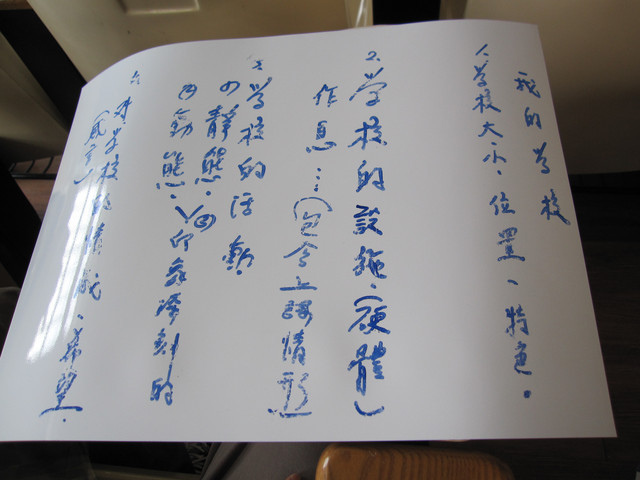 我的学校
1、学校大小、位置、特色。
2、学校的設施、(硬體)
作息…(包含上課情形)
3、学校的活動
的靜態、
動態、印象深刻的
對学校的情感、希望。
(感言)